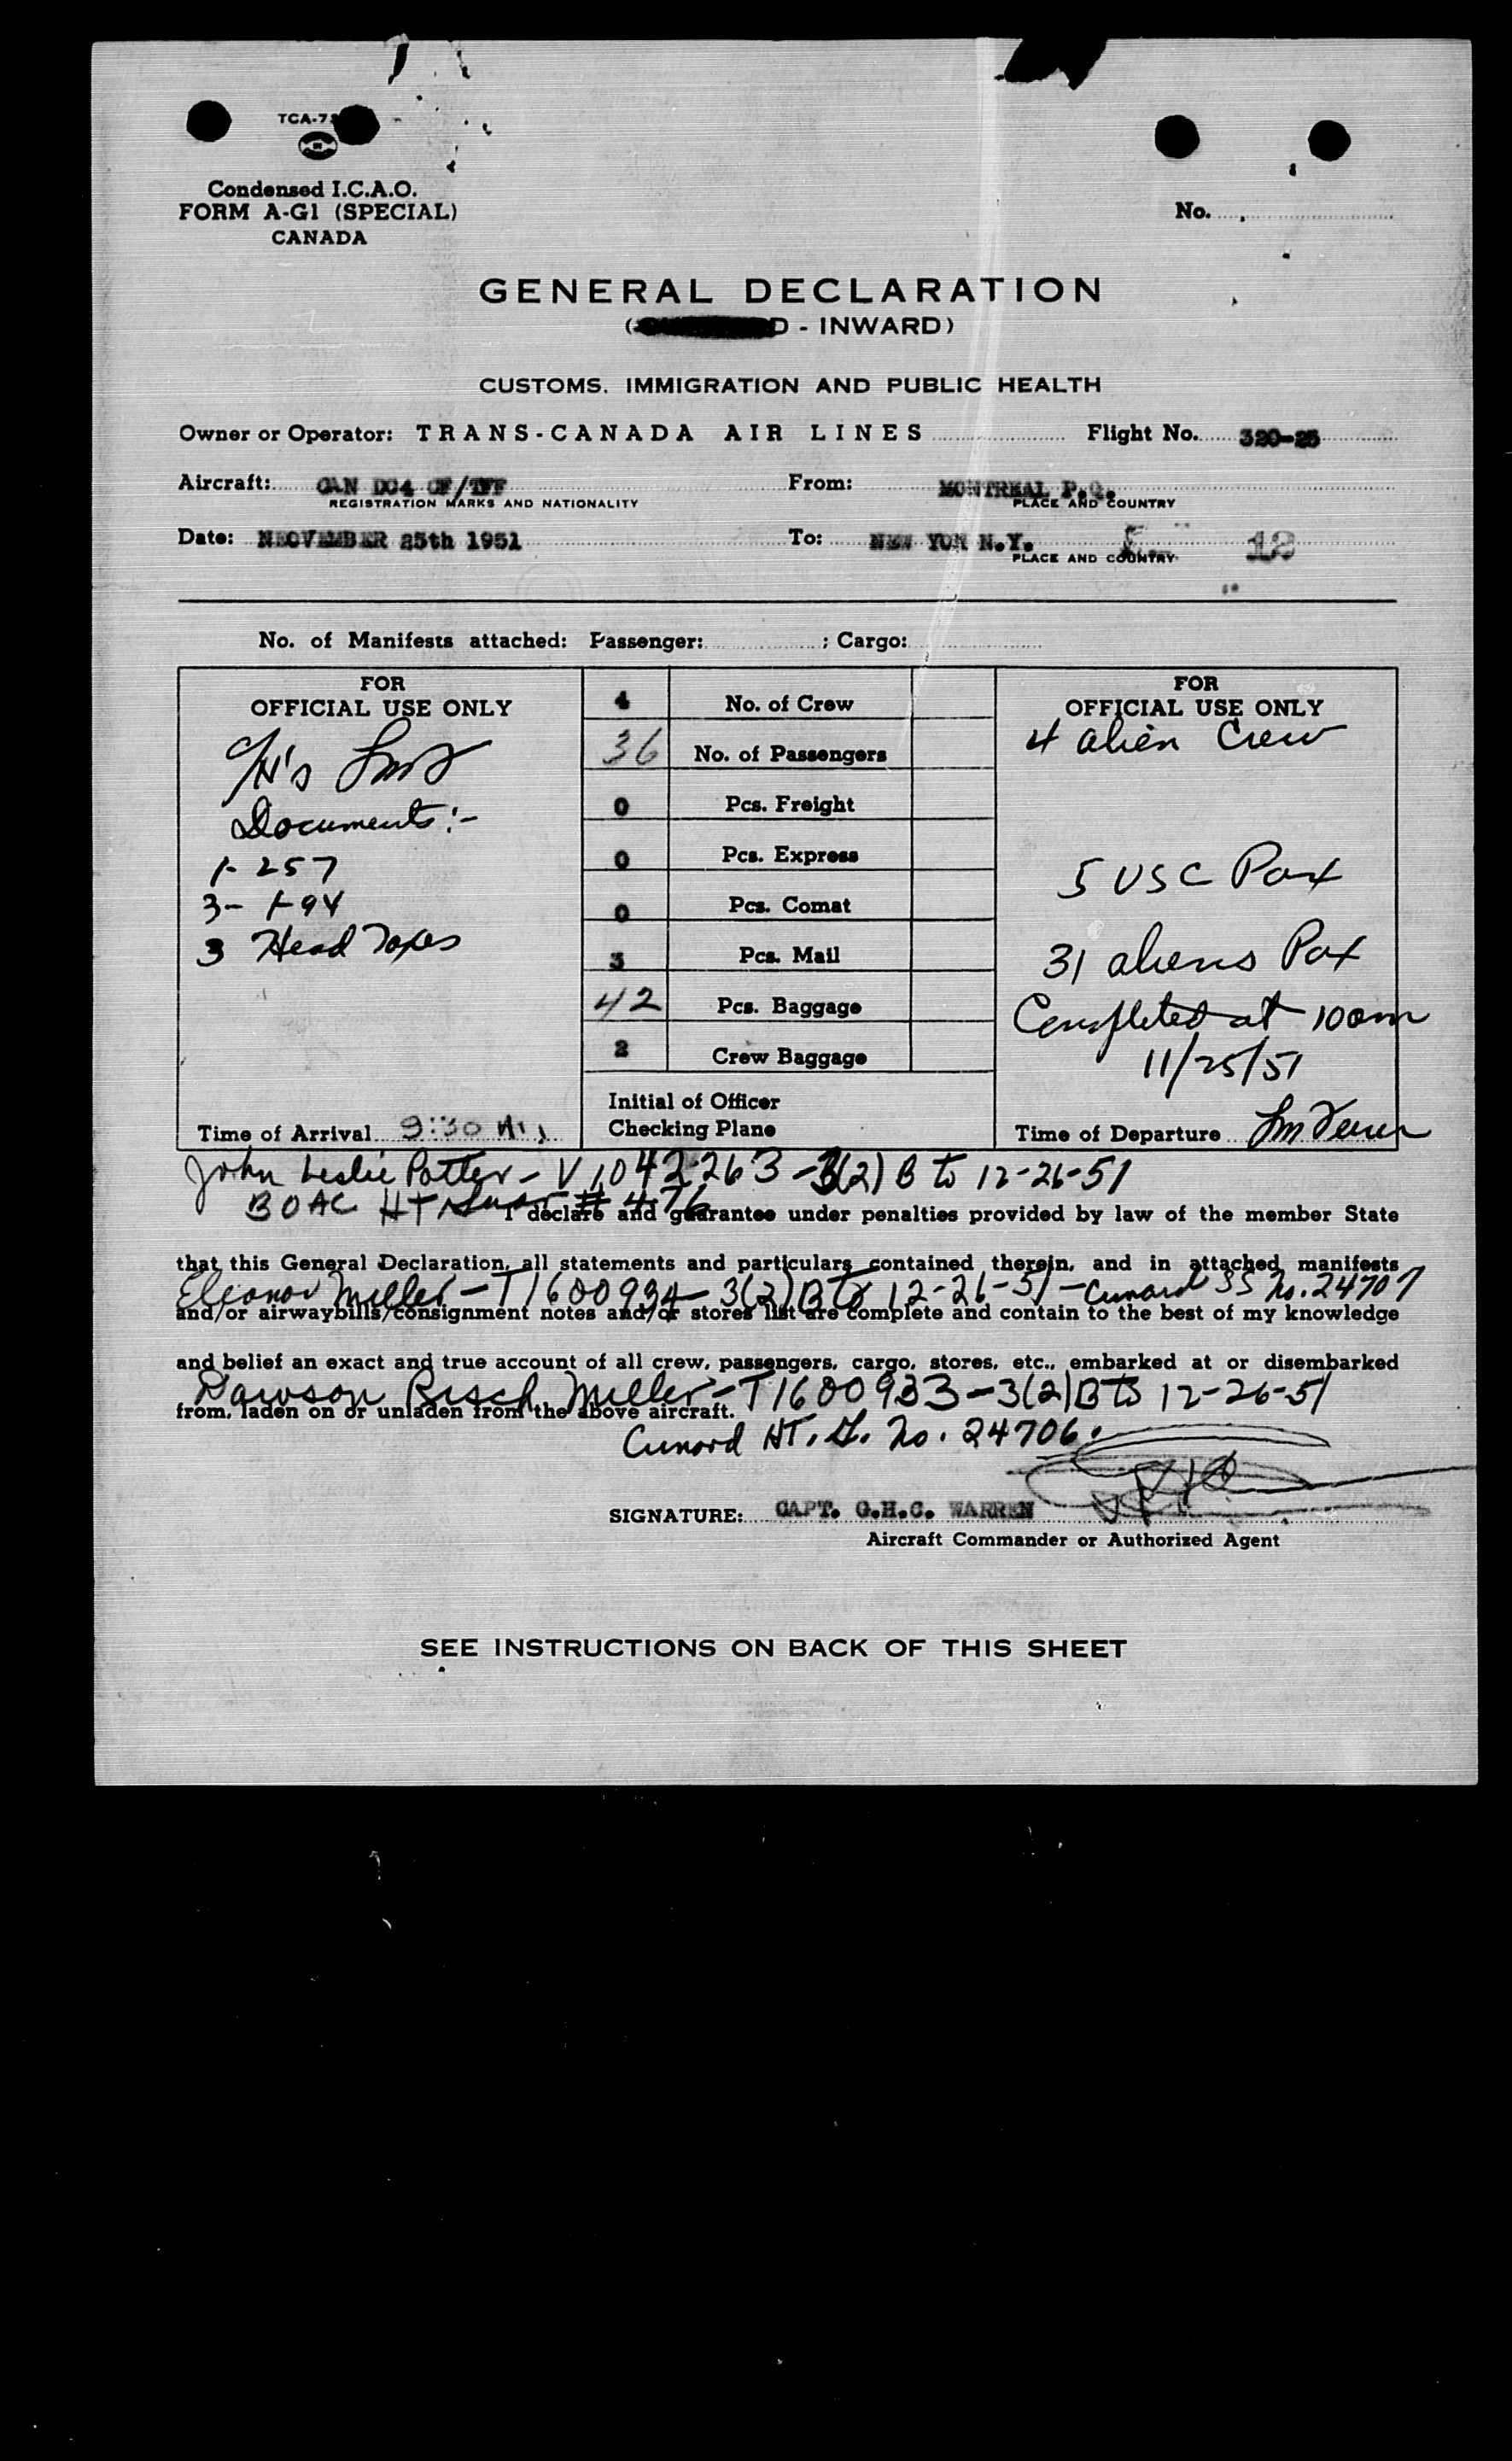 TCA-7
Condensed I.C.A.O.
FORM A-G1 (SPECIAL)
CANADA
No.
GENERAL DECLARATION
( D - INWARD)
CUSTOMS. IMMIGRATION AND PUBLIC HEALTH
Owner or Operator: TRANS-CANADA AIR LINES Flight No. 320-25
Aircraft: CAN DC4 CF/TFF From: MONTREAL P.Q.
REGISTRATION MARKS AND NATIONALITY PLACE AND COUNTRY
Date: NEOVEMBER 25th 1951 To: NEW YOR N.Y. 12
PLACE AND COUNTRY
No. of Manifests attached: Passenger: ; Cargo:
FOR
OFFICIAL USE ONLY
Documents:-
1- 257
3- I-94
3 Head Taxes
Time of Arrival 9:30
4 No. of Crew
36 No. of Passengers
0 Pcs. Freight
0 Pcs. Express
0 Pcs. Comat
3 Pcs. Mail
42 Pcs. Baggage
2 Crew Baggage
Initial of Officer
Checking Plane
FOR
OFFICIAL USE ONLY
4 alien Crew
5 USC Pax
31 aliens Pax
Completed at 10am
11/25/51
Time of Departure
John Leslie Potter - V 1042263 - 3(2) B to 12-26-51
BOAC HT # 476
I declare and guarantee under penalties provided by law of the member State
that this General Declaration, all statements and particulars contained therein, and in attached manifests
Eleanor Miller - T1600934 - 3(2) B to 12-26-51 - Cunard SS No. 24707
and/or airwaybills/consignment notes and/or stores list are complete and contain to the best of my knowledge
and belief an exact and true account of all crew, passengers, cargo, stores, etc., embarked at or disembarked
Dawson Risch Miller - T1600933 - 3(2) B to 12-26-51
from, laden on or unladen from the above aircraft.
Cunard HT. G. No. 24706.
SIGNATURE: CAPT. G.H.C. WARREN
Aircraft Commander or Authorized Agent
SEE INSTRUCTIONS ON BACK OF THIS SHEET